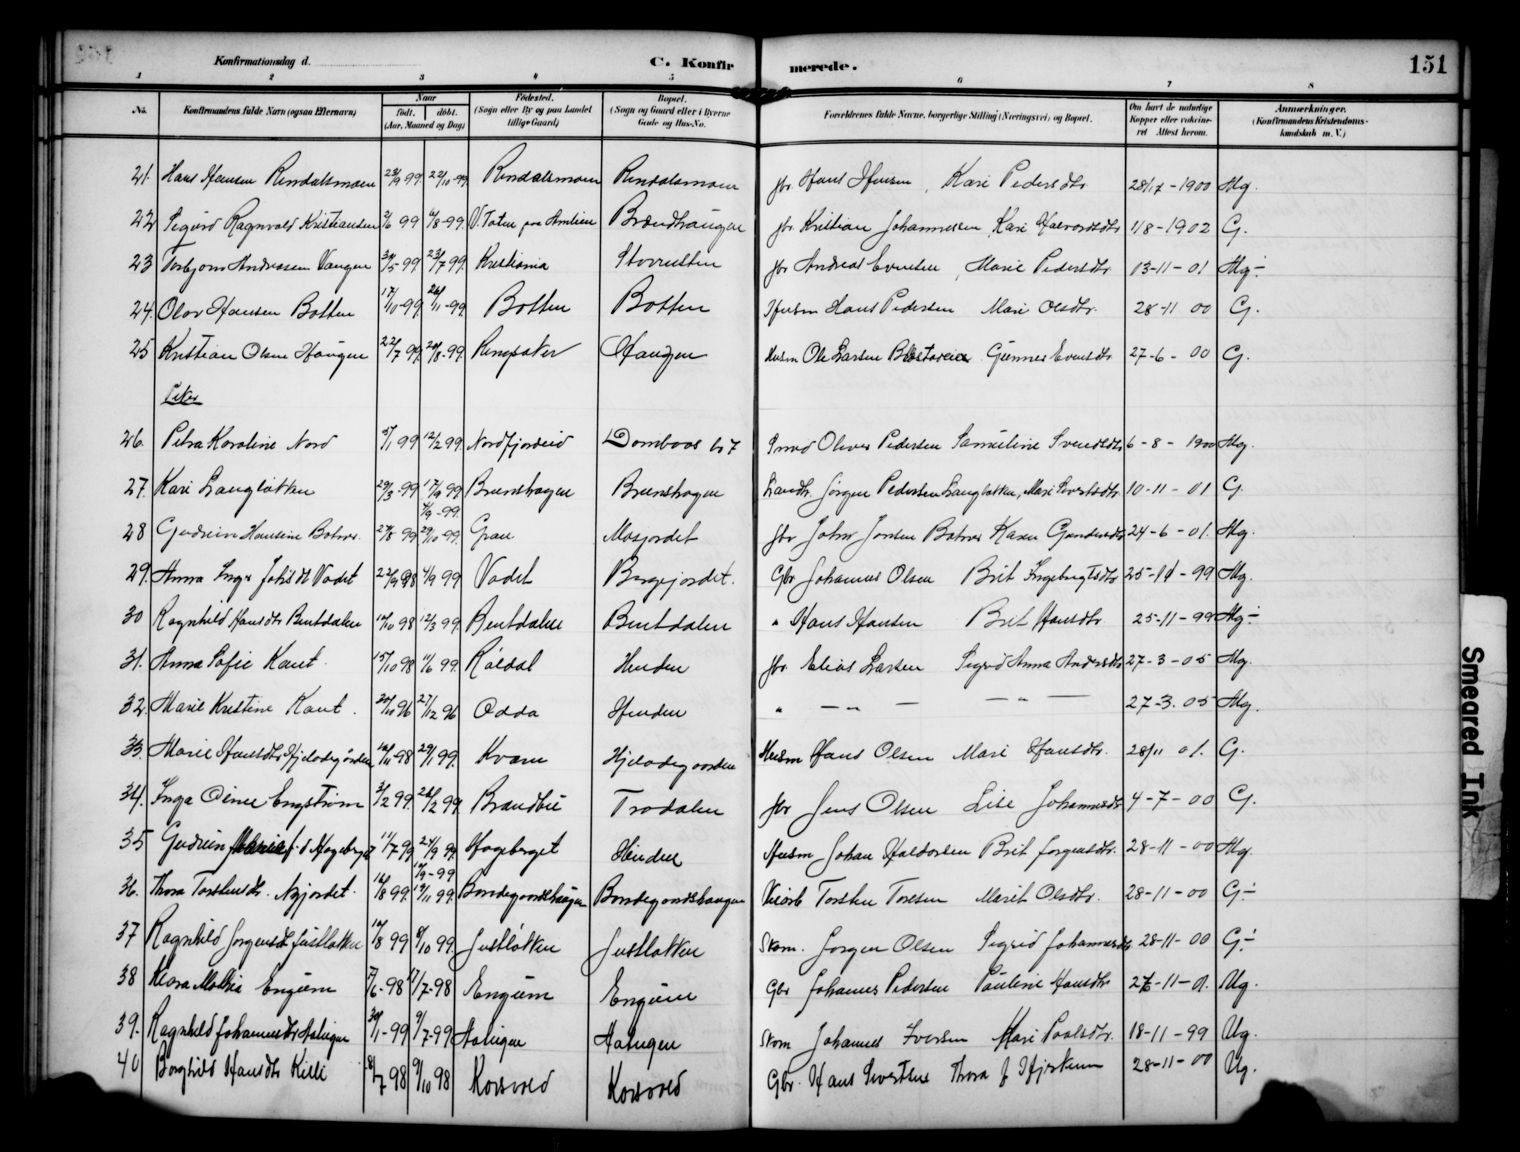 Konfirmationsdag d.
C. Konfirmerede.
151
1 2 3 4 5 6 7 8
No.
Konfirmandens fulde Navn (ogsaa Efternavn)
Naar
født. døbt.
(Aar, Maaned og Dag)
Fødested.
(Sogn eller By og paa Landet
tillige Gaard)
Bopæl.
(Sogn og Gaard eller i Byerne
Gade og Hus-No.
Forældrenes fulde Navne, borgerlige Stilling (Næringsvei) og Bopæl.
Om havt de naturlige
Kopper eller vakcine-
ret Attest herom.
Anmærkninger.
(Konfirmandens Kristendoms-
kundskab m. V.)
21. Hans Hansen Rindalsmoen 22/10-99. Rindalsmoen Rindalsmoen gbr. Hans Hansen, Kari Pedersdtr 28/17-1900 Mg.
22 Sigurd Ragnvald Kristiansen 2/6 99 6/8-99. V. Toten Brændhaugen gbr. Kristian Johannessen Kari Halvorsdtr 1/8-1902 G.
23 Torbjørn Andreasen Vangen 30/5-99 23/7 99. Kristiania gbr Andreas Evensen, Marie Pedersdtr 13-11-01 Mg÷
24. Olav Hansen Botten 17/10-99 26/11-99 Botten Botten Husm Hans Pedersen Mari Olsdtr. 28-11 00 G.
25 Kristian Olsen Haugen 22/7 99. 20/8-99. Ringsaker Haugen Husm Ole Larsen Gunner Evensdtr 27-6-00 G.
Piker
26. Petra Karoline Nord 5/1 99 12/2 99. Nordfjordeid Dombaas Smed Oliver Pedersen Samueline Svendsdtr 6-8-1900 Mg.
27. Kari Langløkken 29/3-99 17/9 99 Brunshagen Brunshagen Jørgen Pedersen Langløkken, Mari Sivertsdtr. 10-11-01 G.
4/9-99.
28 Gudrun Hansine 27/8 99 29/10-99. Gran Mosjordet gbr John Jonsen Karen Gundersdtr 24-6-01. Mg.
29. Anna Inga Johsdt Vadet 4/9 99 Vadet Bergejordet. Gbr Johannes Olsen Brit Ingebrigtsdtr 25-11-99 Mg.
30 Ragnhild Hansdtr Bentdalen 14/10 98 12/3 99. Bentdalen Bentdalen " Hans Hansen Brit Hansdtr. 25-11-99 Mg÷
31. Anna Sofie Kant. 15/10 98 11/6 99. Røldal Hinden gbr. Elias Larsen Sigrid Anna Andersdtr 27-3-05 Mg.
32. Marie Kristine Kant. 30/10 96 27/12 96 Odda Hinden " — " — — " — 27-3.05 Mg.
33. Marie Hansdtr. 16/11-98 29/1 99. Kvam Husm Hans Olsen Mari Hansdtr. 28/11 01. G.
34. Inga Engstrøm 3/2 99. 26/2 99 Brændbu Trodalen gbr Jens Olsen Lise Johannesdt 4-7-00 G.
35 Gudrun Hageberget 11/7 99 24/9 99. Hageberget Hindel Husm Johan Haldorsen Brit Jørgensdtr. 28-11-00 Mg.
17/9-99
36. Thora Torstensdtr. Nyjordet. 16/8 99. 19/11 99. Bondegaardshaugen Bondegaardshaugen Torsten Toresen Marit Olsdtr. 28-11-00 G÷
37 Ragnhild Jørgensdt Justløkken 12/8 99 8/10 99. Justløkken Justløkken Skom. Jørgen Olsen Sigrid Johannesdt 28-11-00 G÷
38 Klara Mathea Engum 7/6-98 17/7-98 Engum Engum Gbr Johannes Pedersen Pauline Hansdtr 26-11-01. Mg.
39. Ragnhild Johannesdtr Haugen 30/1-99 9/7-99 Haugen Haugen Skom Johannes Iversen Mari Paalsdtr. 18-11-99 Mg.
40 Borghild Hansdtr Killi 7 98 9/10 98 Korsvold Korsvold Gbr. Hans Sivertsen Thora J Hjerkinn 28-11-00 Mg.
Smeared Ink